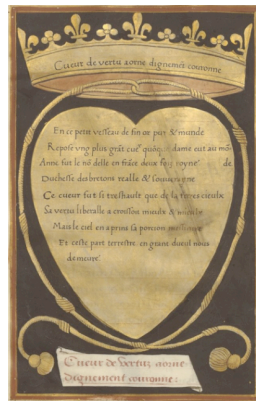 Cueur de vertu aorne dignemēt couronne
En ce petit vesseau de fin or pur & munde
Repose ung plus grāt cueur dame eut au mō-
Anne fut le nō delle en frāce deux foys royne de
Duchesse des bretons realle & souveraine
Ce cueur fut si treshault que de la terre es cieulx
Sa vertu liberalle accroissoit mieulx & mieulx
Mais le ciel en a prins sa portion
Et ceste part terrestre en grant dueil nous
demeure
Cueur de vertuz aorne
dignement couronne: